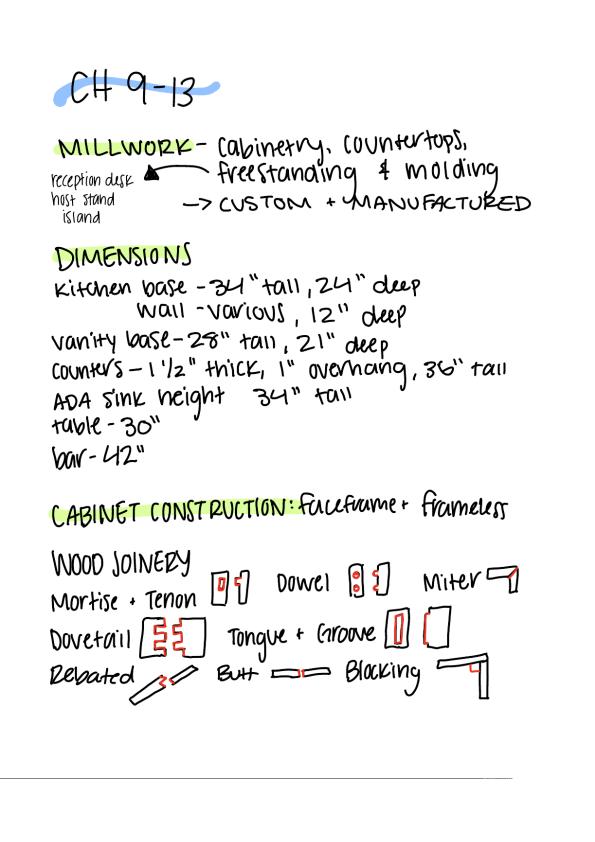 CH 9-13
MILLWORK - Cabinetry, Countertops,
freestanding & molding
reception desk
host stand
island
-> CUSTOM + MANUFACTURED
DIMENSIONS
Kitchen base - 34" tall, 24" deep
wall - various, 12" deep
vanity base - 28" tall, 21" deep
counters - 1 1/2" thick, 1" overhang, 36" tall
ADA sink height 34" tall
table - 30"
bar - 42"
CABINET CONSTRUCTION: faceframe + frameless
WOOD JOINERY
Mortise + Tenon Dowel Miter
Dovetail Tongue + Groove
Rebated Butt Blocking